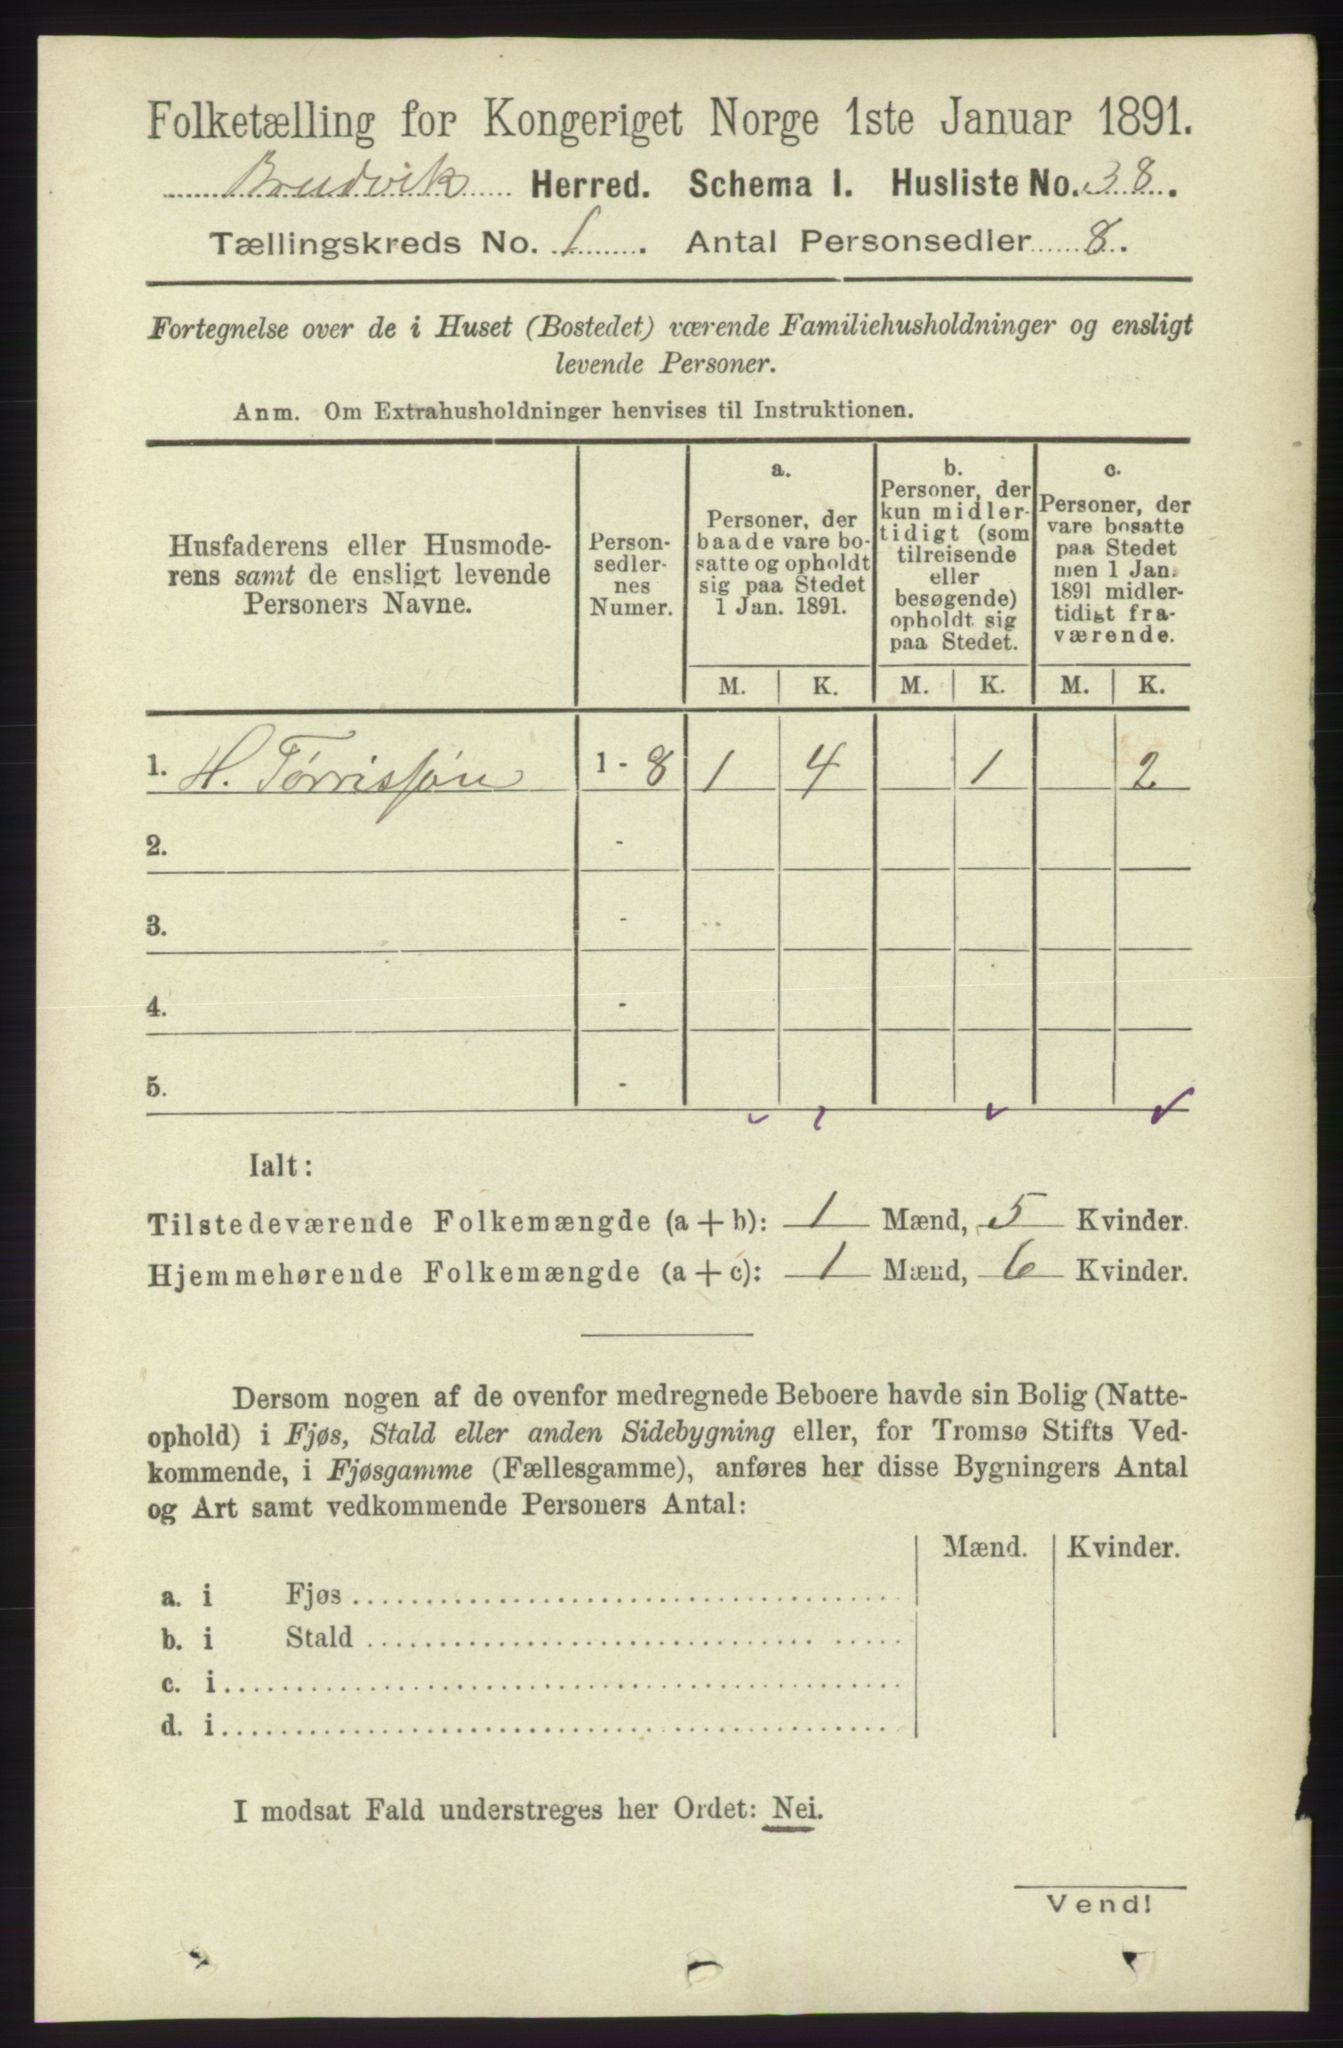 Folketælling for Kongeriget Norge 1ste Januar 1891.
Brudvik Herred. Schema I. Husliste No. 38.
Tællingskreds No. 1. Antal Personsedler 8.
Fortegnelse over de i Huset (Bostedet) værende Familiehusholdninger og ensligt
levende Personer.
Anm. Om Extrahusholdninger henvises til Instruktionen.
Husfaderens eller Husmode-
rens samt de ensligt levende
Personers Navne.
Person-
sedler-
nes
Numer.
a.
Personer, der
baade vare bo-
satte og opholdt
sig paa Stedet
1 Jan. 1891.
b.
Personer, der
kun midler-
tidigt (som
tilreisende
eller
besøgende)
opholdt sig
paa Stedet.
c.
Personer, der
vare bosatte
paa Stedet
men 1 Jan.
1891 midler-
tidigt fra-
værende.
M. K. M. K. M. K.
1. H. Tørrissøn 1 - 8 1 4 1 2
2. -
3. -
4. -
5. -
Ialt:
Tilstedeværende Folkemængde (a + b): 1 Mænd, 5 Kvinder.
Hjemmehørende Folkemængde (a + c): 1 Mænd, 6 Kvinder.
Dersom nogen af de ovenfor medregnede Beboere havde sin Bolig (Natte-
ophold) i Fjøs, Stald eller anden Sidebygning eller, for Tromsø Stifts Ved-
kommende, i Fjøsgamme (Fællesgamme), anføres her disse Bygningers Antal
og Art samt vedkommende Personers Antal:
Mænd. Kvinder.
a. i Fjøs
b. i Stald
c. i
d. i
I modsat Fald understreges her Ordet: Nei.
Vend!